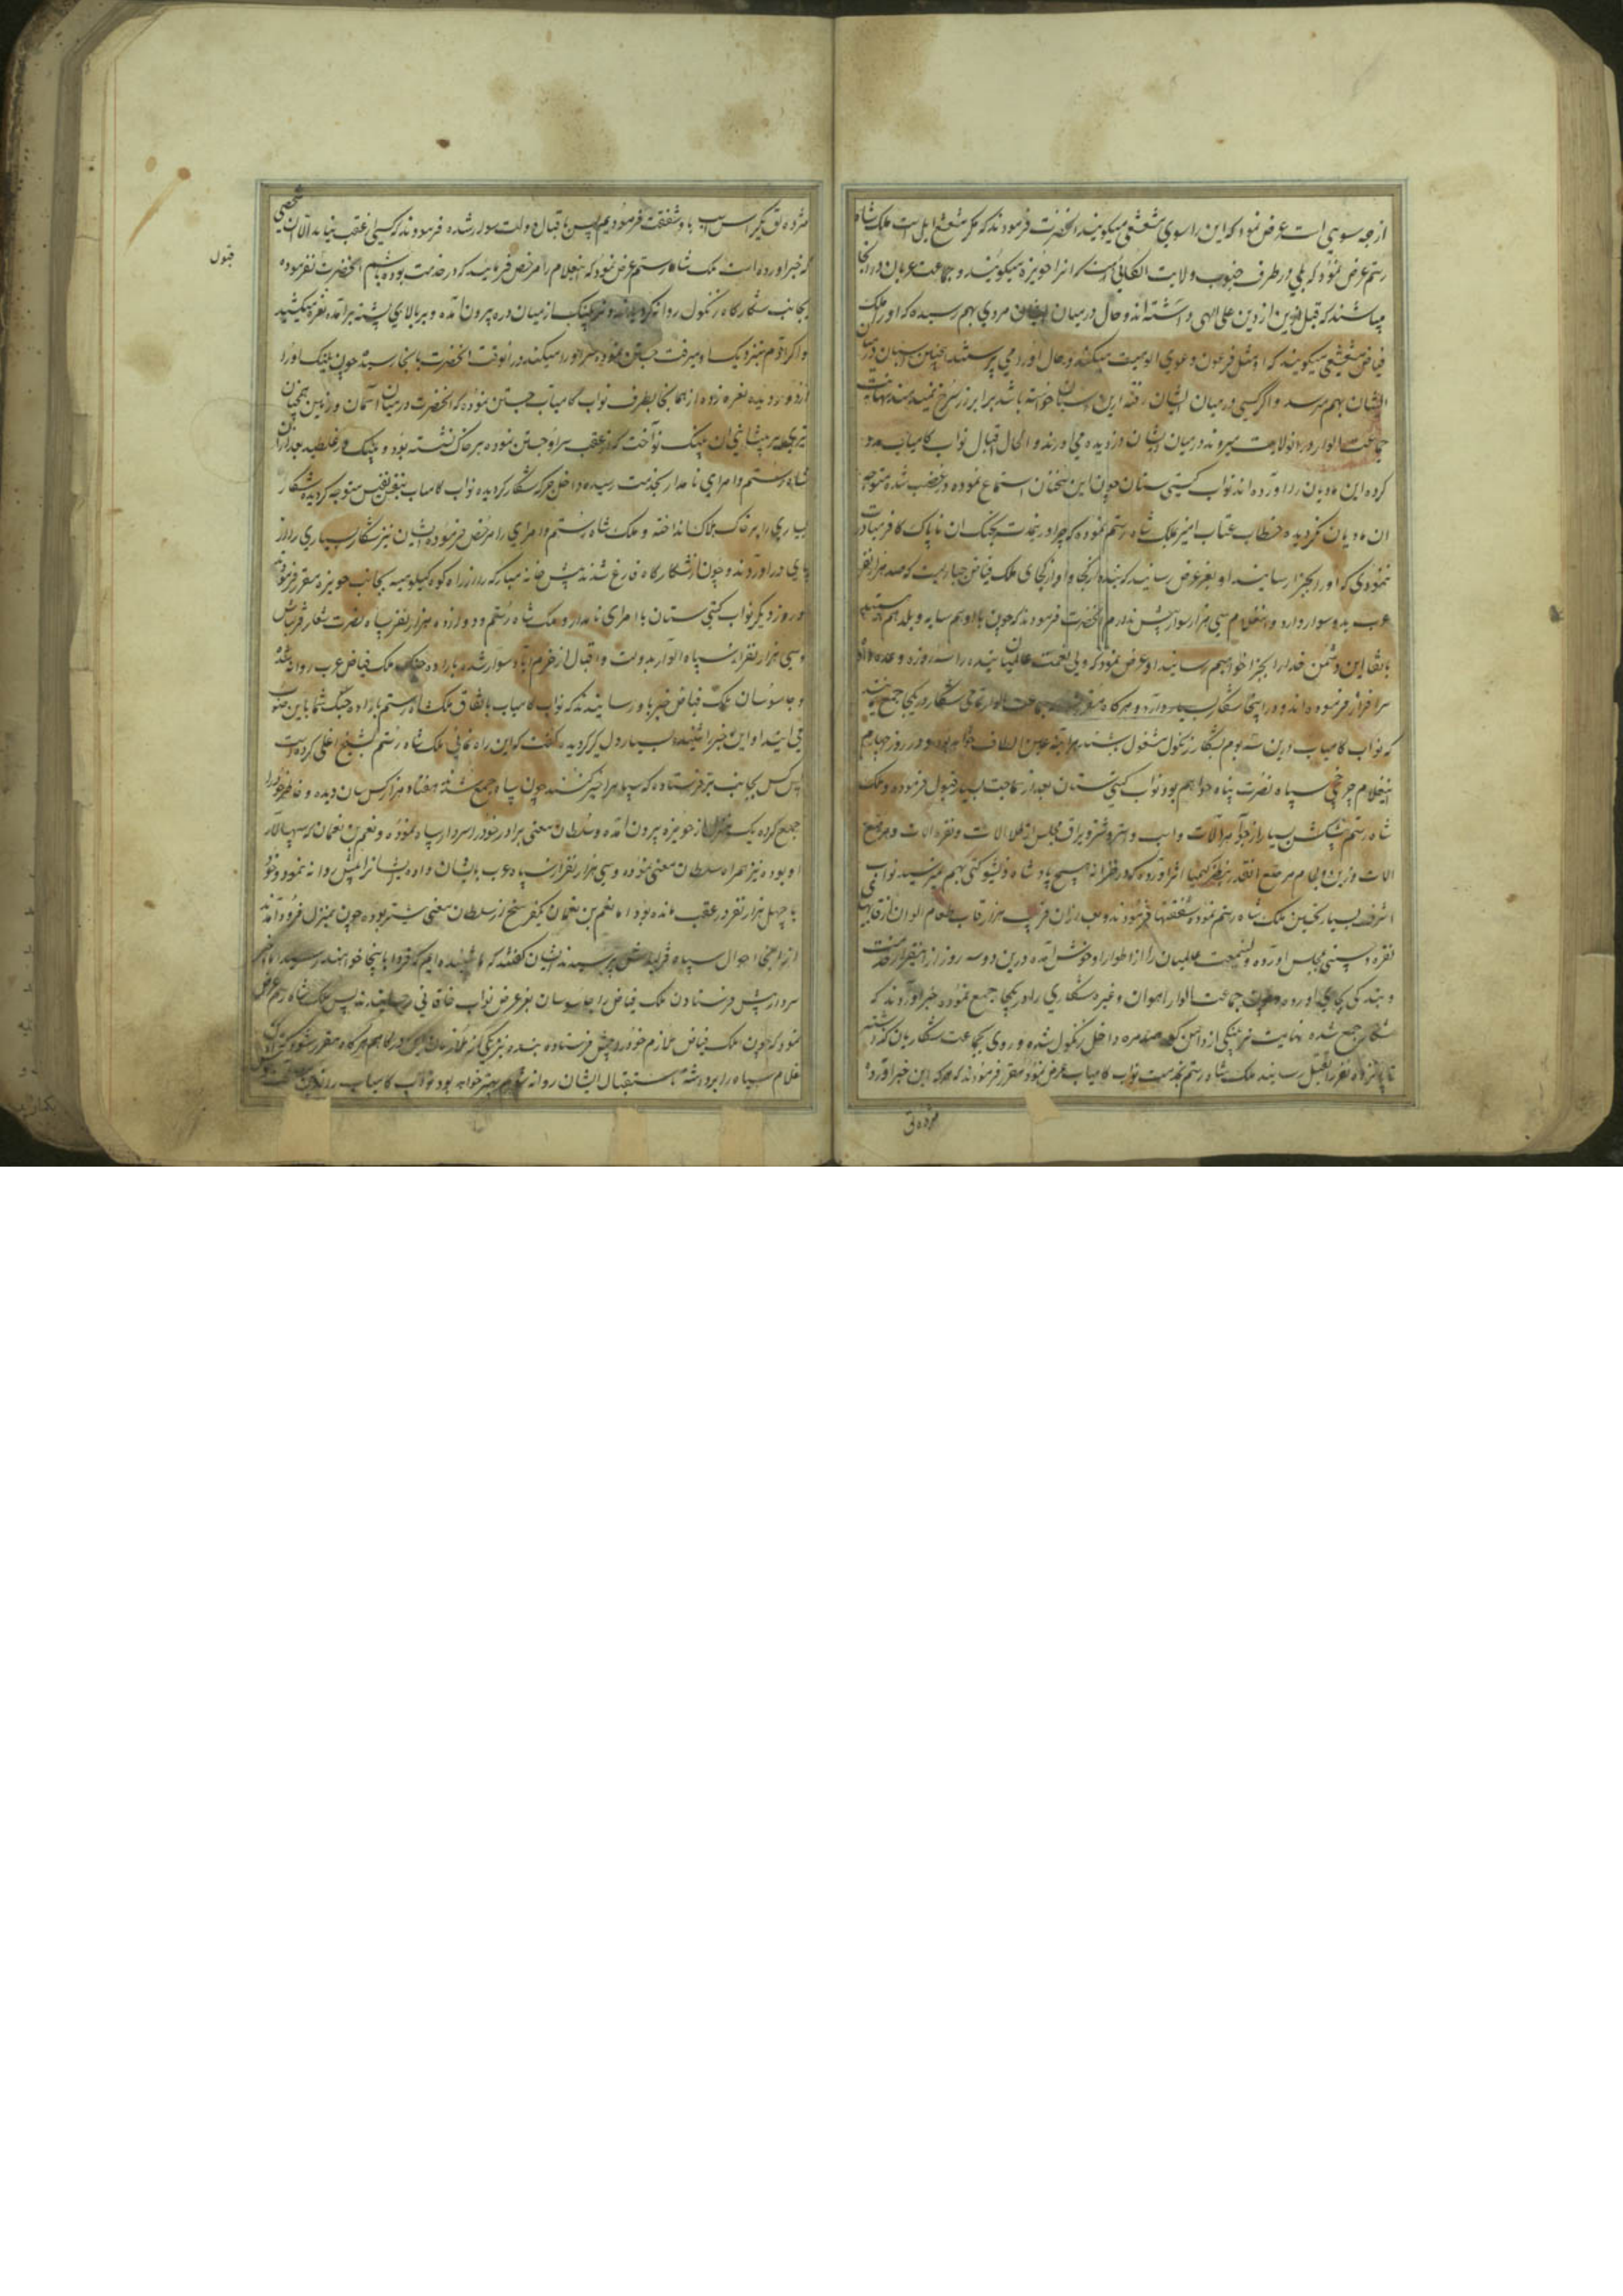 از چه سویی است عرض نمود که این را سوی شعشعی میکویند انحضرت فرمودند که مکر شعشع ایل است ملک شاه
رستم عرض نمود که بلی در طرف جنوب ولایت الکائی است که انرا حویزه میکویند و جماعت عربان در انجا
میباشند که قبل ازین از دین علی الهی داشته اند و حال در میان ایشان مردی بهم رسیده که او را ملک
فیاض شعشعی میکویند که او مثل فرعون دعوی الوهیت میکند و حال او را می پرستند این چنین اسبان در میان
ایشان بهم میرسد و اگر کسی در میان ایشان رفته ازین اسبان خواسته باشد برابر زر سرخ نمیدهند نهایت
جماعت الوار در انولایت میروند در میان ایشان دزدیده می آورند و الحال اقبال نواب کامیاب مدد
کرده این مادیان را آورده اند نواب کیتی ستان چون این سخنان استماع نموده در غضب شده متوجه
ان مادیان نکردیده خطاب عتاب امیز بملک شاه رستم نموده که چرا در خدمت بجنک ان ناپاک کافر مبادرت
ننمودی که او را بجزا رسانید او بعز عرض رسانید که بنده از کجا و او از کجا ملک فیاض جباریست که صد هزار نفر
عرب بدو سوار دارد و این غلام سی هزار سوار بیش ندارم انحضرت فرمودند که چون با او همسایه و بلد هم هستید
باتفاق این دشمن خدا را بجزا خواهیم رسانید او عرض نمود که ولی نعمت عالمیان بنده را سه روزه وعده
سرافراز فرموده اند و در اینجا شکار بسیار دارد و هرکاه مقرر شود جماعت الوار تمامی شکار در یکجا جمع نمایند
که نواب کامیاب درین سه یوم بشکار زنکول مشغول باشند هر اینه عین الطاف خواهد بود و در روز چهارم
این غلام چرخچی سپاه نصرت پناه خواهم بود نواب کیتی ستان بعد از سماجت بسیار قبول فرموده و ملک
شاه رستم پیشکش بسیار از جواهر آلات و اسب و استر و شتر و یراق مجلس از طلا الات و نقره الات و مرصع
الات و زین و لجام مرصع انقدر بنظر کیمیا اثر آورده که در خزانه هیچ پادشاه ذیشوکتی بهم نمیرسید نواب
اشرف بسیار تحسین ملک شاه رستم نموده و شفقتها فرمودند و بعد از ان قریب هزار قاب طعام الوان از قابهای
نقره و چینی بمجلس آورده ولینعمت عالمیان را از اطوار او خوش آمده درین دو سه روز ازینقرار خدمت
و بندکی بجای اورده و چون جماعت الوار آهوان و غیره شکاری را در یکجا جمع نموده خبر آوردند که
شکار جمع شده نهایت نر پلنکی از دامن کوه داخل زنکول شده و روی بجماعت شکاریان کذاشته
تا پانزده نفر را بقتل رسانید ملک شاه رستم بخدمت نواب کامیاب عرض نمود مقرر فرمودند که هرکه این خبر آورده
مژده ق
مژده ق یکراس اسب باو شفقت فرمودیم پس باقبال و دولت سوار شده فرمودند که کسی از عقب نیاید الا ان شخصی
که خبر اورده است ملک شاه رستم عرض نمود که اینغلام را مرخص فرمایند که در خدمت بوده باشم انحضرت نفرموده
بجانب شکارکاه زنکول روانه کردیدند و نر پلنک از میان دره بیرون آمده و بر بالای پشته برآمده نعره میکشید
و اکر آدم بنزدیک او میرفت جستن نموده سر او را میکند در انوقت انحضرت بانجا رسید چون پلنک او را
از دور دیده نعره زده از همانجا بطرف نواب کامیاب جستن نموده که انحضرت در میان آسمان و زمین همچنان
تیری بر پیشانی ان پلنک نواخت که از عقب سر او جستن نموده بر خاک نشسته بود و پلنک در غلطید بعد از ان
شاه رستم و امرای نامدار بخدمت رسیده داخل جرکه شکار کردیده نواب کامیاب بنفس نفیس متوجه کردیده شکار
بسیاری را بر خاک هلاک انداخته و ملک شاه رستم و امرای را مرخص فرموده ایشان نیز شکار بسیاری را از
پای در آوردند و چون از شکارکاه فارغ شدند پیش خانه مبارکه را از راه کوه کیلویه بجانب حویزه مقرر فرموده
و روز دیکر نواب کیتی ستان با امرای نامدار و ملک شاه رستم و دوازده هزار نفر سپاه نصرت شعار قزلباش
و سی هزار نفر از سپاه الوار بدولت و اقبال از خرم اباد سوار شده باراده جنک ملک فیاض عرب روانه شدند
و جاسوسان ملک فیاض خبر باو رسانیدند که نواب کامیاب باتفاق ملک شاه رستم باراده جنک شما باین صوب
می ایند او این خبر را شنیده بسیار دلکیر کردیده کفت که این راه نمائی ملک شاه رستم بشیخ اغلی کرده است
پس کس بجانب فرستاده که سپاه را خبر کنند چون سپاه جمع شدند هفتاد هزار کس سان دیده و خاطر خود را
جمع کرده یک منزل از حویزه بیرون آمده و سلطان معنی برادر خود را سردار سپاه نموده و نعیم بن نعمان که سپهسالار
او بوده نیز همراه سلطان معنی نموده و سی هزار نفر از سپاه عرب بایشان داده ایشانرا پیش روانه نمود و خود
با چهل هزار نفر در عقب مانده بود اما نعیم بن نعمان یکفرسخ از سلطان معنی پیشتر بوده چون بمنزل فرود آمدند
از انجا احوال سپاه قزلباش پرسیدند ایشان کفتند که ما شنیده ایم که فردا باینجا خواهند رسید اما خبر
سردار پیش فرستادن ملک فیاض را جاسوسان بعز عرض نواب خاقانی رسانیدند پس ملک شاه رستم عرض
نمود که چون ملک فیاض ملازم خود را پیش فرستاده بنده نیز یکی از ملازمان این درکاهم هرکاه مقرر شود که این
غلام سپاه را برداشته باستقبال ایشان روانه شویم بهتر خواهد بود نواب کامیاب را این
قبول